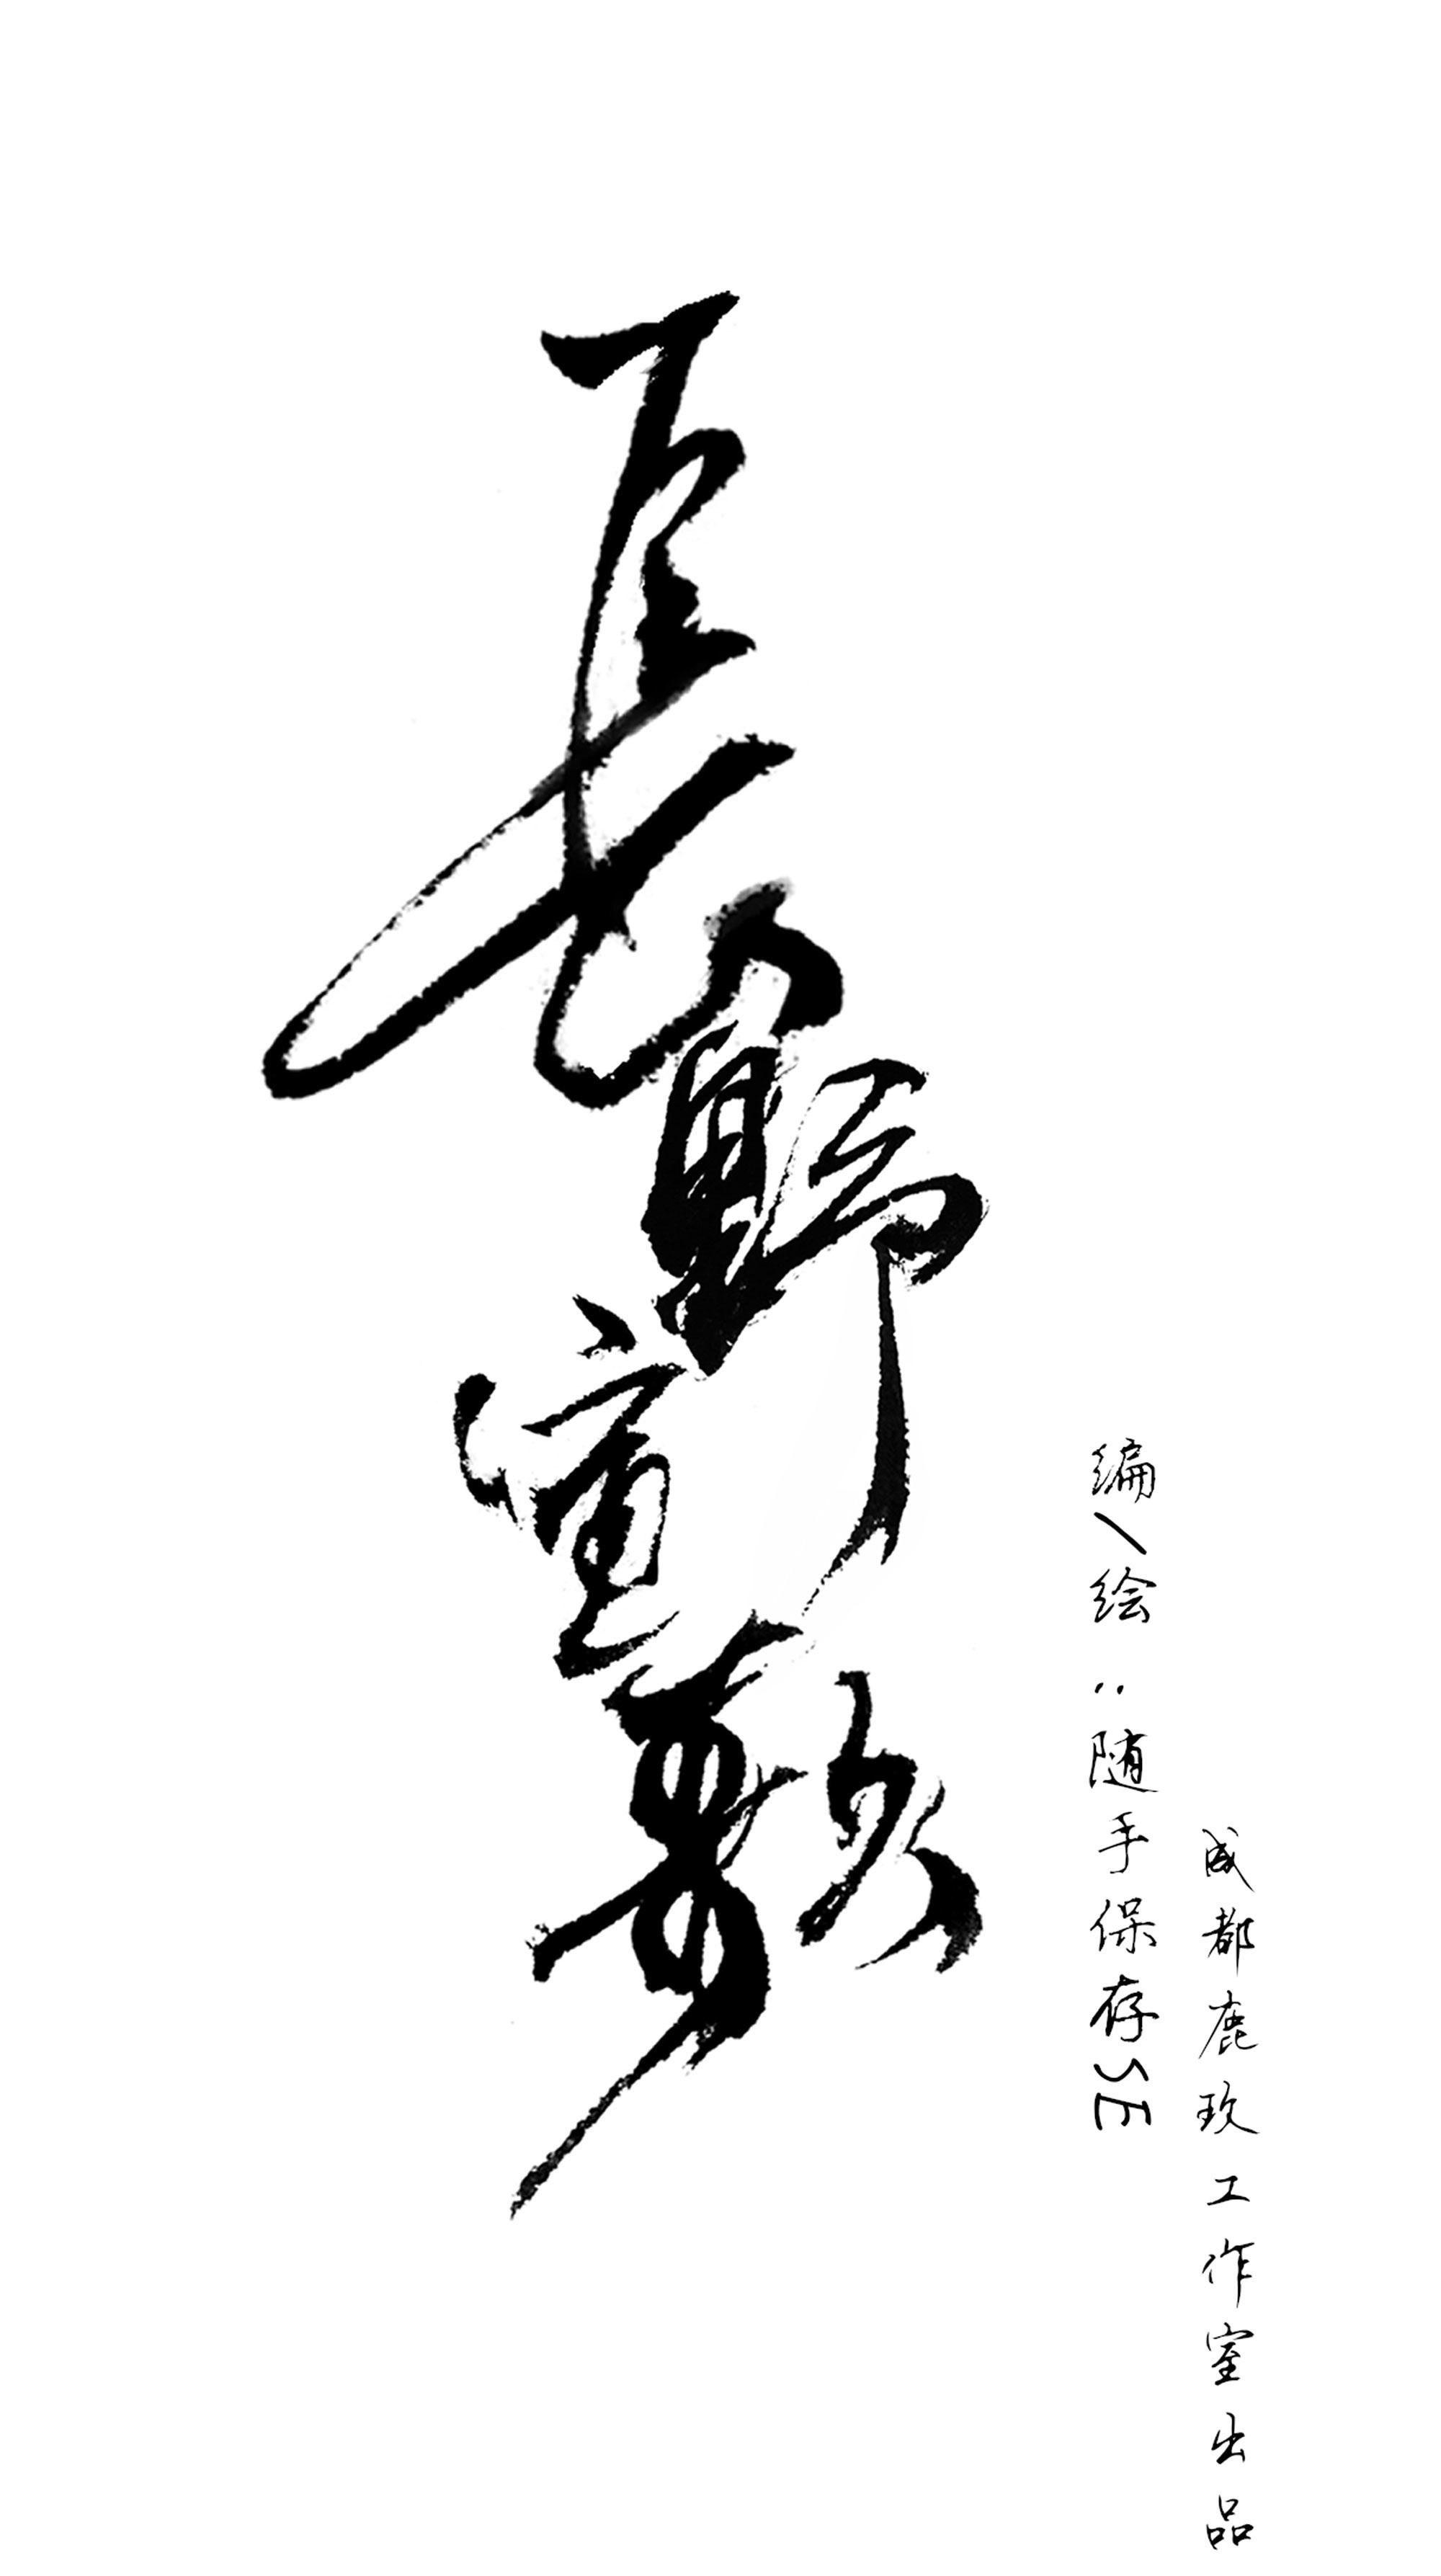 長野宣
编/绘:随手保存SE
成都鹿玖工作室出品